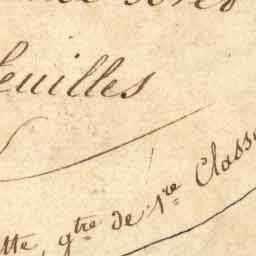 feuilles
gtre de 1re Classe